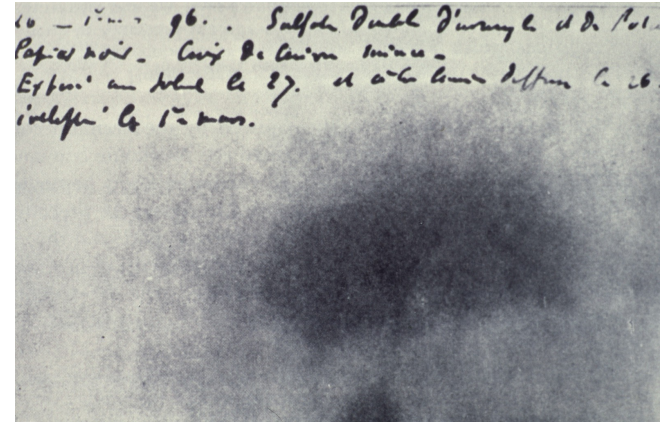 96. . Sulfate Double d'uranyle et de Pot
Papier noir. Croix de Cuivre mince.
Exposé au soleil le 27. et à la lumière diffuse le 26.
Développé le 1er mars.